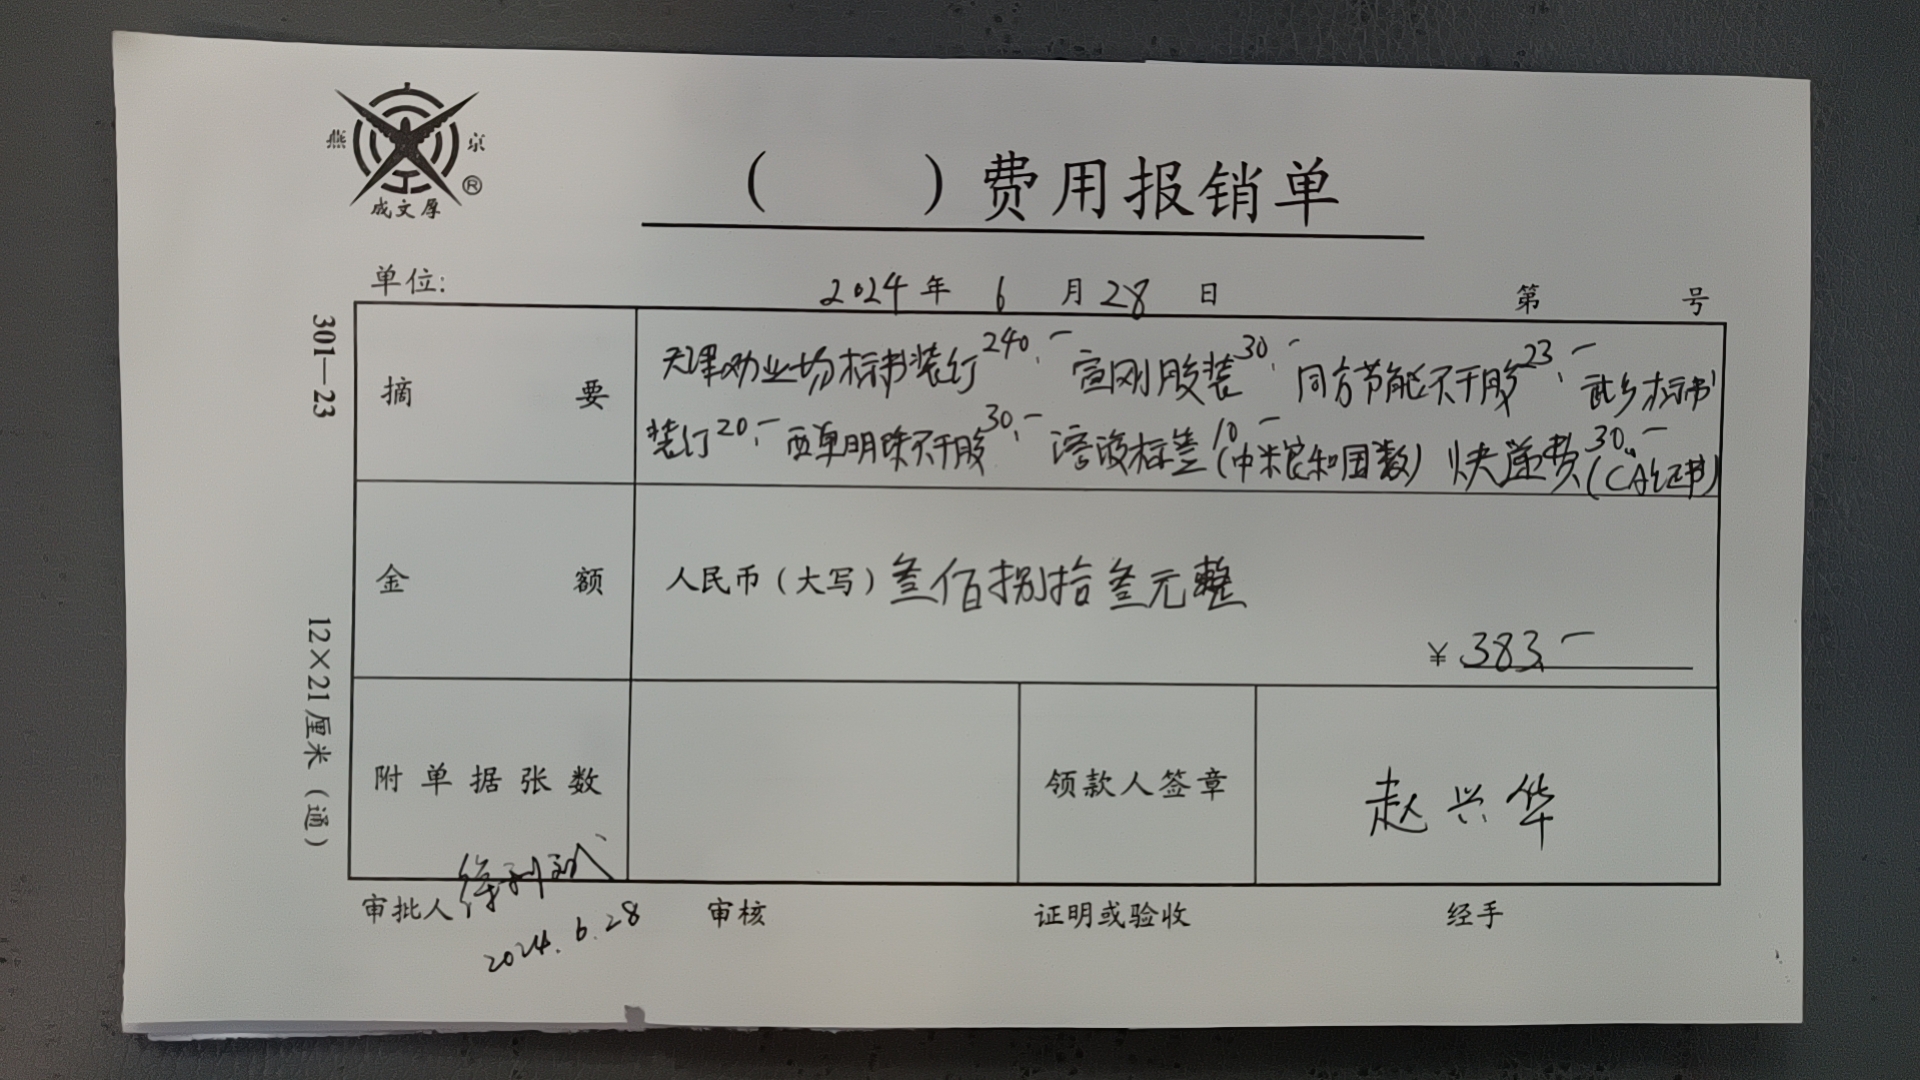 燕 京
®
成文厚
( ) 费用报销单
单位: 2024 年 6 月 28 日 第 号
301—23
12×21厘米（通）
摘 要
天津劝业场标书装订240.- 宣刚胶装30.- 同方节能不干胶23.- 武乡标书
装订20.- 西单明珠不干胶30.- 溶液标签10.-(中粮和园数) 快递费30.-(CA证书)
金 额 人民币（大写）叁佰捌拾叁元整
¥ 383.-
附单据张数 领款人签章 赵兴华
审批人 审核 证明或验收 经手
2024.6.28